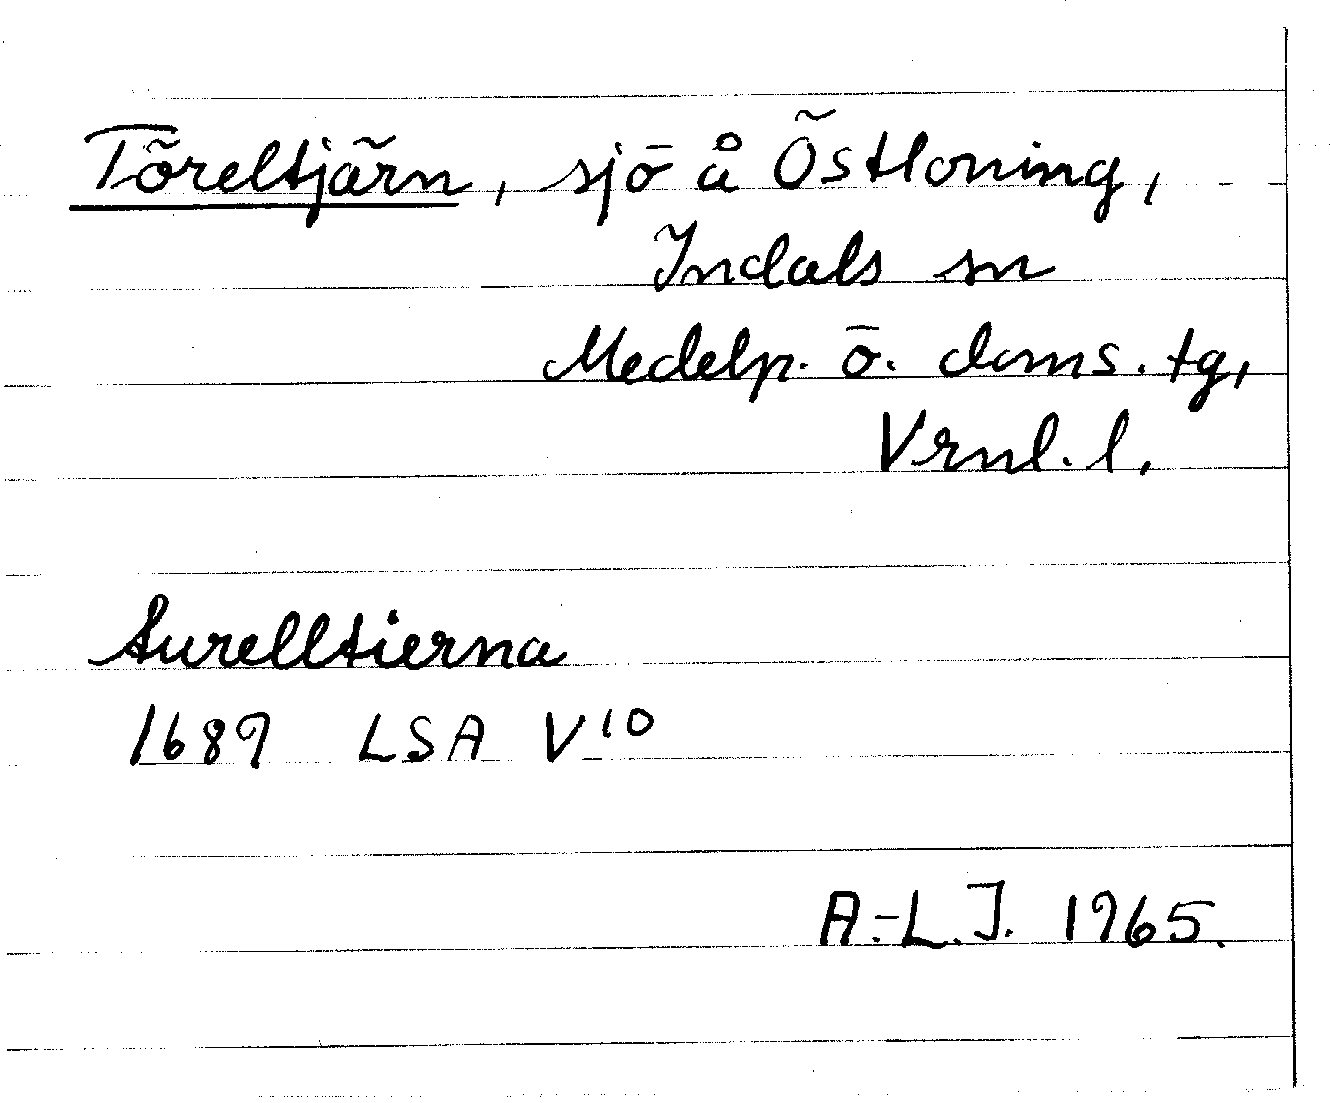 Töreltjärn, sjö å Östloning,
Indals sn
Medelp. ö. doms. tg,
Vrnl. l.
Turelltierna
1689 LSA V 10
A.-L.J. 1965.